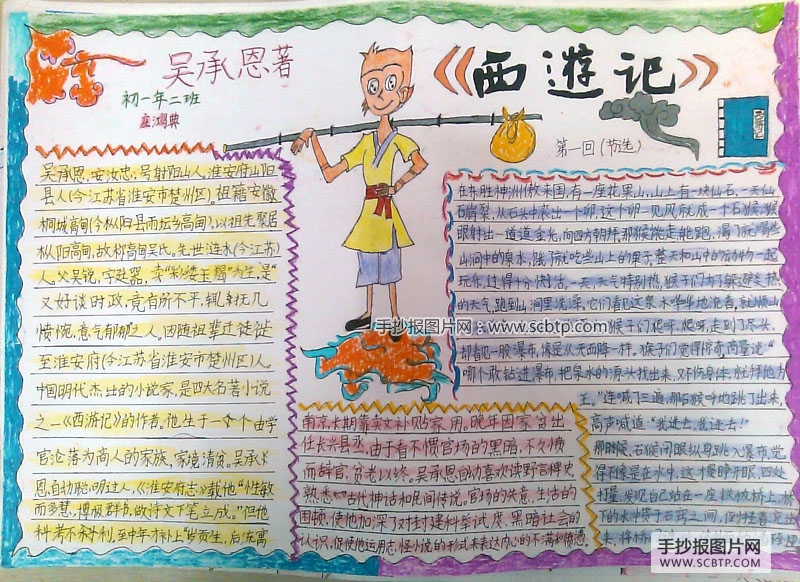 吴承恩著
初一年二班
《西遊记》
西游记
第一回(节选)
吴承恩,字汝忠,号射阳山人,淮安府山阳
县人(今江苏省淮安市楚州区)。祖籍安徽
桐城高甸(今枞阳县雨坛乡高甸),以祖先聚居
枞阳高甸,故称高甸吴氏。先世涟水(今江苏)
人。父吴锐,字廷器,卖"彩缕玉褐"为生,是"
又好谈时政,竟有所不平,辄抚几
愤惋,意气郁郁之人。因随祖辈迁徙徙
至淮安府(今江苏省淮安市楚州区)人。
中国明代杰出的小说家,是四大名著小说
之一《西游记》的作者。他生于一个由学
官沦落为商人的家族,家境清贫。吴承
恩自幼聪明过人,《淮安府志》载他"性敏
而多慧,博极群书,做诗文下笔立成。"但他
科考不利,至中年才补上"岁贡生,后流寓
南京,长期靠卖文补贴家用。晚年因家贫出
任长兴县丞,由于看不惯官场的黑暗,不久愤
而辞官,贫老以终。吴承恩自幼喜欢读野言稗史,
熟悉古代神话和民间传说。官场的失意,生活的
困顿,使他加深了对封建科举制度、黑暗社会的
认识,促使他运用志怪小说的形式来表达内心的不满和愤慨。
在东胜神洲傲来国,有一座花果山,山上有一块仙石,一天仙
石崩裂,从石头中滚出一个卵,这个卵一见风就成一个石猴,猴
眼射出一道道金光,向四方朝拜。那猴能走、能跑,渴了就喝些
山涧中的泉水,饿了就吃些山上的果子。整天和山中的动物一起
玩乐,过得十分快活。一天,天气特别热,猴子们为了躲避炎热
的天气,跑到山涧里洗澡。它们看见这泉水哗哗地流着,就顺山
猴子们爬呀、爬呀,走到了尽头,
却看见一股瀑布,像是从天而降一样。猴子们觉得惊奇,商量说"
哪个敢钻进瀑布,把泉水的源头找出来,又不伤身体,就拜他为
王。"连喊了三遍,那石猴呼地跳了出来,
高声喊道:"我进去,我进去!"
那时候,石猴闭眼纵身跳入瀑布,觉
得不像是在水中,这才睁开眼,四处
打量,发现自己站在一座铁板桥上,桥
下的水冲贯于石窍之间,倒挂着流出
手抄报图片网:www.scbtp.com
手抄报图片网
WWW.SCBTP.COM